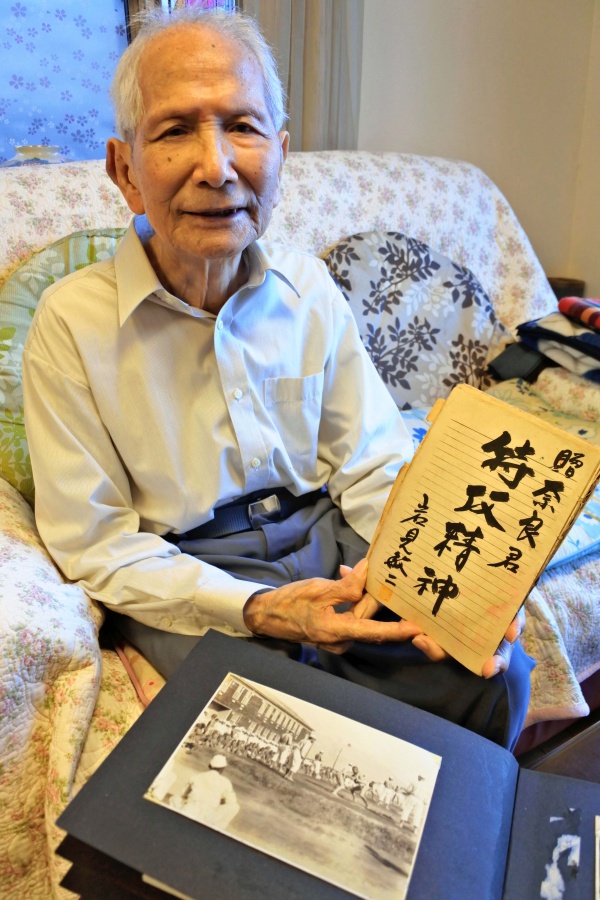 贈奈良君
特攻精神
岩見敏二